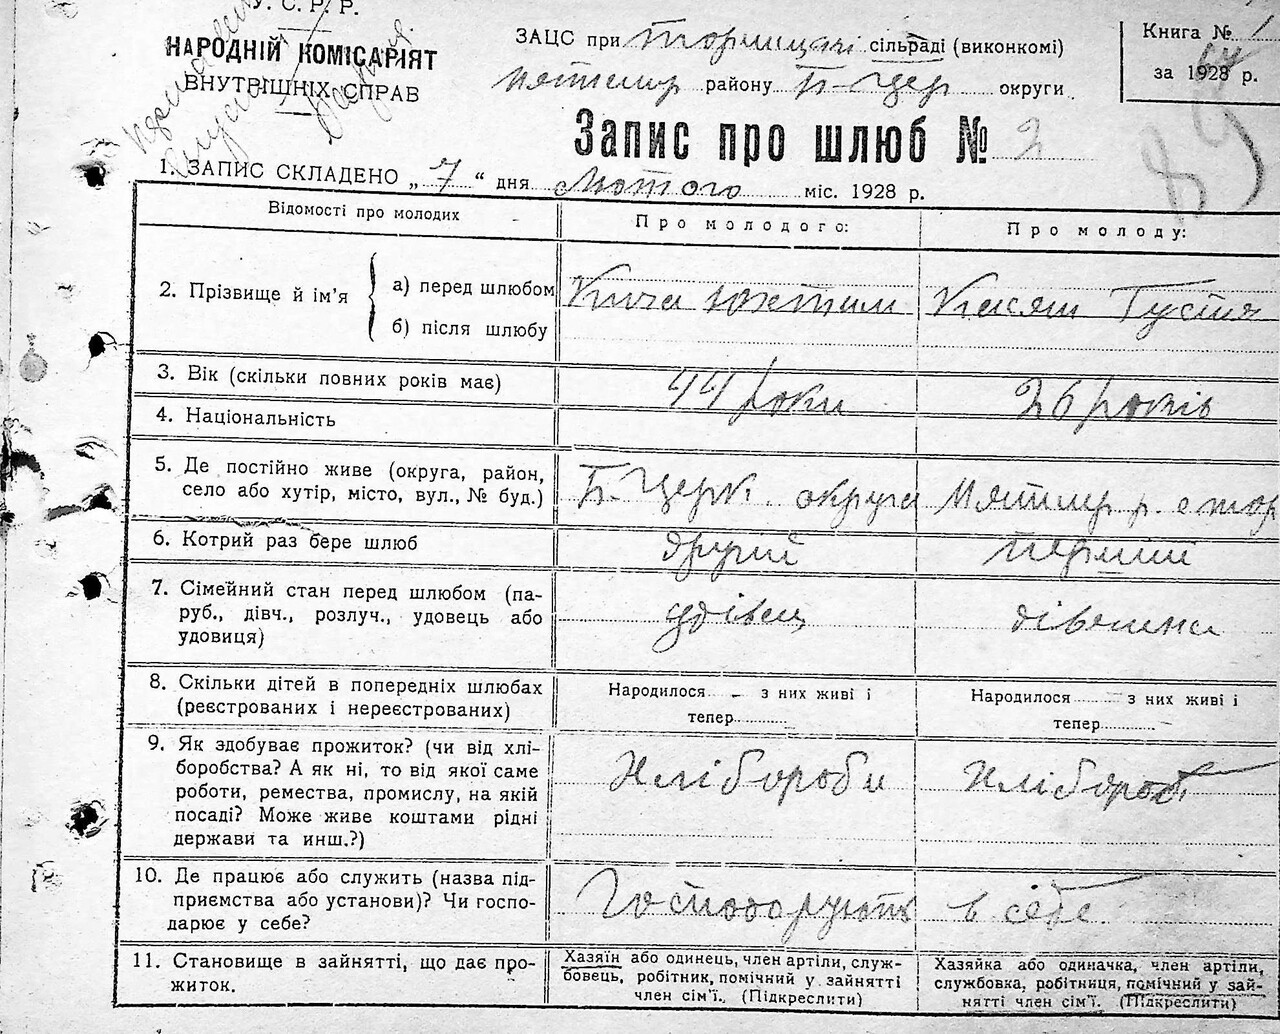 У. С. Р. Р.
НАРОДНІЙ КОМІСАРІЯТ
ВНУТРІШНІХ СПРАВ
ЗАЦС при сільраді (виконкомі)
району Б-Цер округи
Книга № 1
за 1928 р.
89
Запис про шлюб № 2
1. ЗАПИС СКЛАДЕНО „ 7 “ дня Лютого міс. 1928 р.
Відомості про молодих
Про молодого:
Про молоду:
2. Прізвище й ім'я
а) перед шлюбом
б) після шлюбу
Юхтим
Густя
3. Вік (скільки повних років має)
44 роки
26 років
4. Національність
5. Де постійно живе (округа, район,
село або хутір, місто, вул., № буд.)
Б-Церк. округа
р. с
6. Котрий раз бере шлюб
другий
перший
7. Сімейний стан перед шлюбом (па-
руб., дівч., розлуч., удовець або
удовиця)
удівец
дівчина
8. Скільки дітей в попередніх шлюбах
(реєстрованих і нереєстрованих)
Народилося - з них живі і
тепер
Народилося - з них живі і
тепер
9. Як здобуває прожиток? (чи від хлі-
боробства? А як ні, то від якої саме
роботи, ремества, промислу, на якій
посаді? Може живе коштами рідні
держави та инш.?)
Хліборобы
Хлібороб
10. Де працює або служить (назва під-
приємства або установи)? Чи госпо-
дарює у себе?
Господарують в себе
11. Становище в зайнятті, що дає про-
житок.
Хазяїн або одинець, член артіли, служ-
бовець, робітник, помічний у зайнятті
член сім'ї. (Підкреслити)
Хазяйка або одиначка, член артіли,
службовка, робітниця, помічний у зай-
нятті член сім'ї. (Підкреслити)